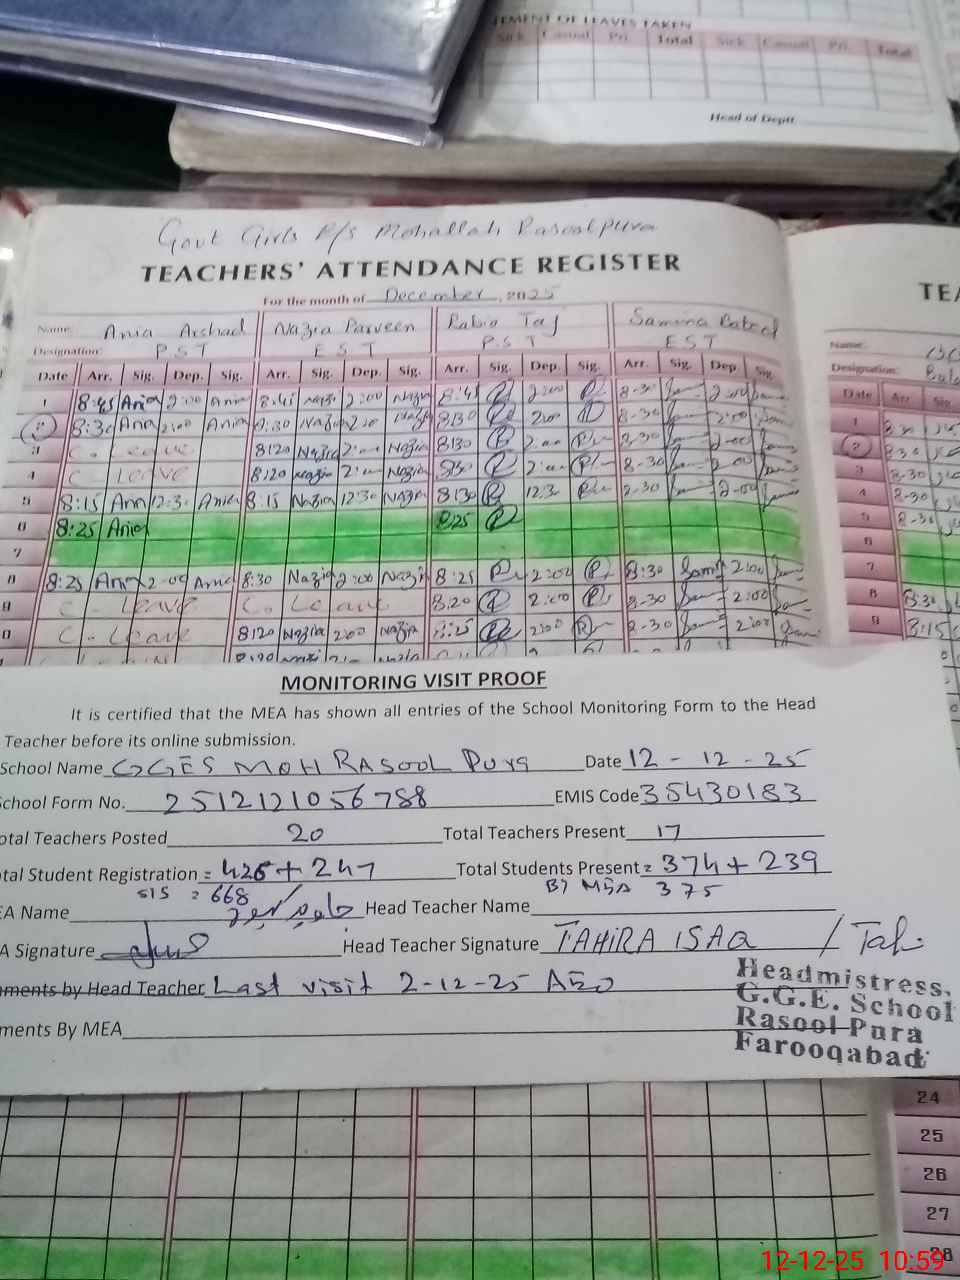 EMENT OF LEAVES TAKEN
Sick Casual Pri. Total Sick Casual Pri. Total
Head of Deptt
Govt Girls P/S Mohallah Rasoolpura
TEACHERS' ATTENDANCE REGISTER
For the month of December, 2025
Name: Ania Arshad Nazia Parveen Rabia Taj Samina Batool
Designation: P.S.T E S T P.S.T E S T
Date Arr. Sig. Dep. Sig. Arr. Sig. Dep. Sig. Arr. Sig. Dep. Sig. Arr. Sig. Dep. Sig.
1 8:45 Ania 2:00 Ania 8:45 Nazia 2:00 Nazia 8:45 2:00 8-30 2:00
2 8:30 Ania 2:00 Ania 8:30 Nazia 2:00 Nazia 8:30 2:00 8-30 2:00
3 C. Leave 8:20 Nazia 2:00 Nazia 8:30 2:00 8-30 2:00
4 C Leave 8:20 Nazia 2:00 Nazia 8:30 2:00 8-30 2:00
5 8:15 Ania 12:30 Ania 8:15 Nazia 12:30 Nazia 8:30 12:30 8-30 2:00
6 8:25 Ania 8:25
7
8 8:25 Ania 2:00 Ania 8:30 Nazia 2:00 Nazia 8:25 2:00 8:30 2:00
9 C - Leave C. Leave 8:20 2:00 8-30 2:00
10 C - Leave 8:20 Nazia 2:00 Nazia 8:25 2:00 8-30 2:00
TEA
Name:
Designation:
Date Arr Sig.
1 8 30
2 8 30
3 8-30
4 8-30
5 8-30
6
7
8 8:30
9 8:15
MONITORING VISIT PROOF
It is certified that the MEA has shown all entries of the School Monitoring Form to the Head
Teacher before its online submission.
School Name GGES MOH RASOOL PURA Date 12 - 12 - 25
School Form No. 2512121056788 EMIS Code 35430183
otal Teachers Posted 20 Total Teachers Present 17
tal Student Registration = 426 + 247 Total Students Present = 374 + 239
SIS = 668 By MEA 375
EA Name Head Teacher Name
A Signature Head Teacher Signature TAHIRA ISAQ / Tah
mments by Head Teacher Last visit 2-12-25 AEO
ments By MEA
Headmistress,
G.G.E. School
Rasool Pura
Farooqabad
24
25
26
27
28
12-12-25 10:59